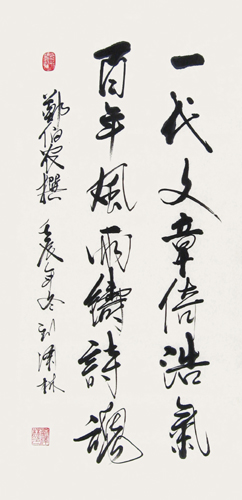 一代文章倚浩氣
百年風雨鑄詩魂
鄭伯農撰 壬辰年冬 劉清林